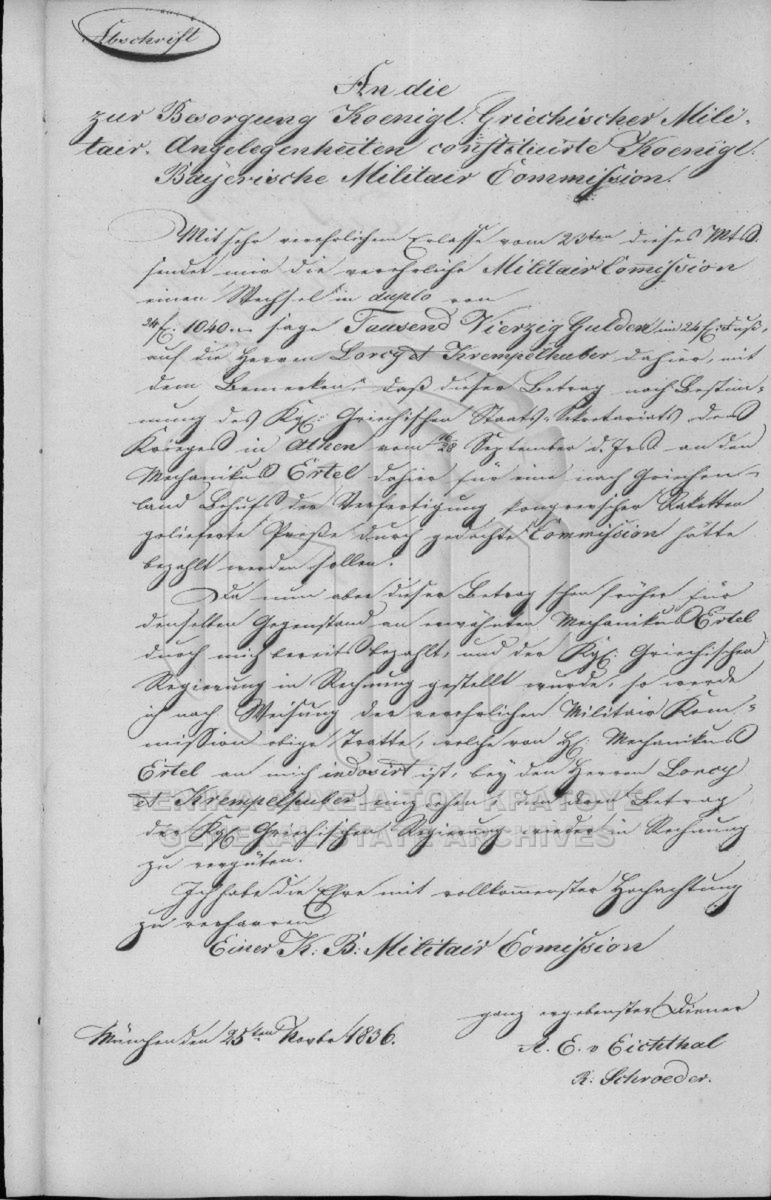 Abschrift
An die
zur Besorgung Koenigl. Griechischer Mili-
tair. Angelegenheiten constituirte Koenigl.
Bayerische Militair Commission.
Mit sehr verehrlichem Erlasse vom 23ten dieses Mts
sendet mir die verehrliche Militair Commission
einen Wechsel in duplo von
f: 1040.– sage Tausend Vierzig Gulden im 24 f: Fuß,
auf die Herren Lorcy & Krempelhuber dahier, mit
dem Bemerken, daß dieser Betrag nach Bestim-
mung des Kgl: Griechischen Staats-Sekretariats des
Krieges in Athen vom 16/28 September d. Jrs an den
Mechanikus Ertel dahier für eine nach Griechen-
land Behufs der Verfertigung kongrevscher Raketten
gelieferte Preße durch gedachte Commission hätte
bezahlt werden sollen.
Da nun aber dieser Betrag schon früher für
denselben Gegenstand an erwähnten Mechanikus Ertel
durch mich bereits bezahlt, und der Kgl: Griechischen
Regierung in Rechnung gestellt wurde, so werde
ich nach Weisung der verehrlichen Militair Kom-
mission obige Tratte, welche von H: Mechanikus
Ertel an mich indosirt ist, bey den Herren Lorcy
& Krempelhuber einziehen, und den Betrag
der Kgl: Griechischen Regierung wieder in Rechnung
zu vergüten.
Ich habe die Ehre mit vollkommenster Hochachtung
zu verharren
Einer K: B: Militair Comission
ganz ergebenster Diener
München den 25ten Novbr 1836.
A. E. v Eichthal
R: Schroeder.
ΓΕΝΙΚΑ ΑΡΧΕΙΑ ΤΟΥ ΚΡΑΤΟΥΣ
GENERAL STATE ARCHIVES